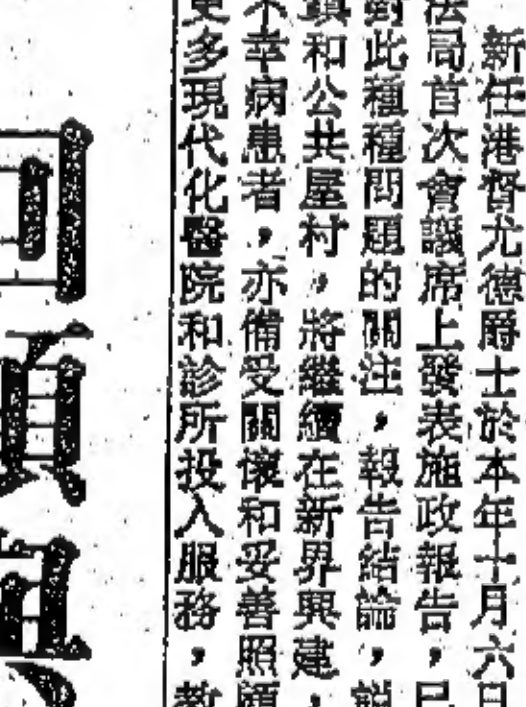 新任港督尤德爵士於本年十月六日
法局首次會議席上發表施政報告，已
對此種種問題的關注，報告結論，說
鎮和公共屋村，將繼續在新界興建，
不幸病患者，亦備受關懷和妥善照顧
更多現代化醫院和診所投入服務，教
回顧與